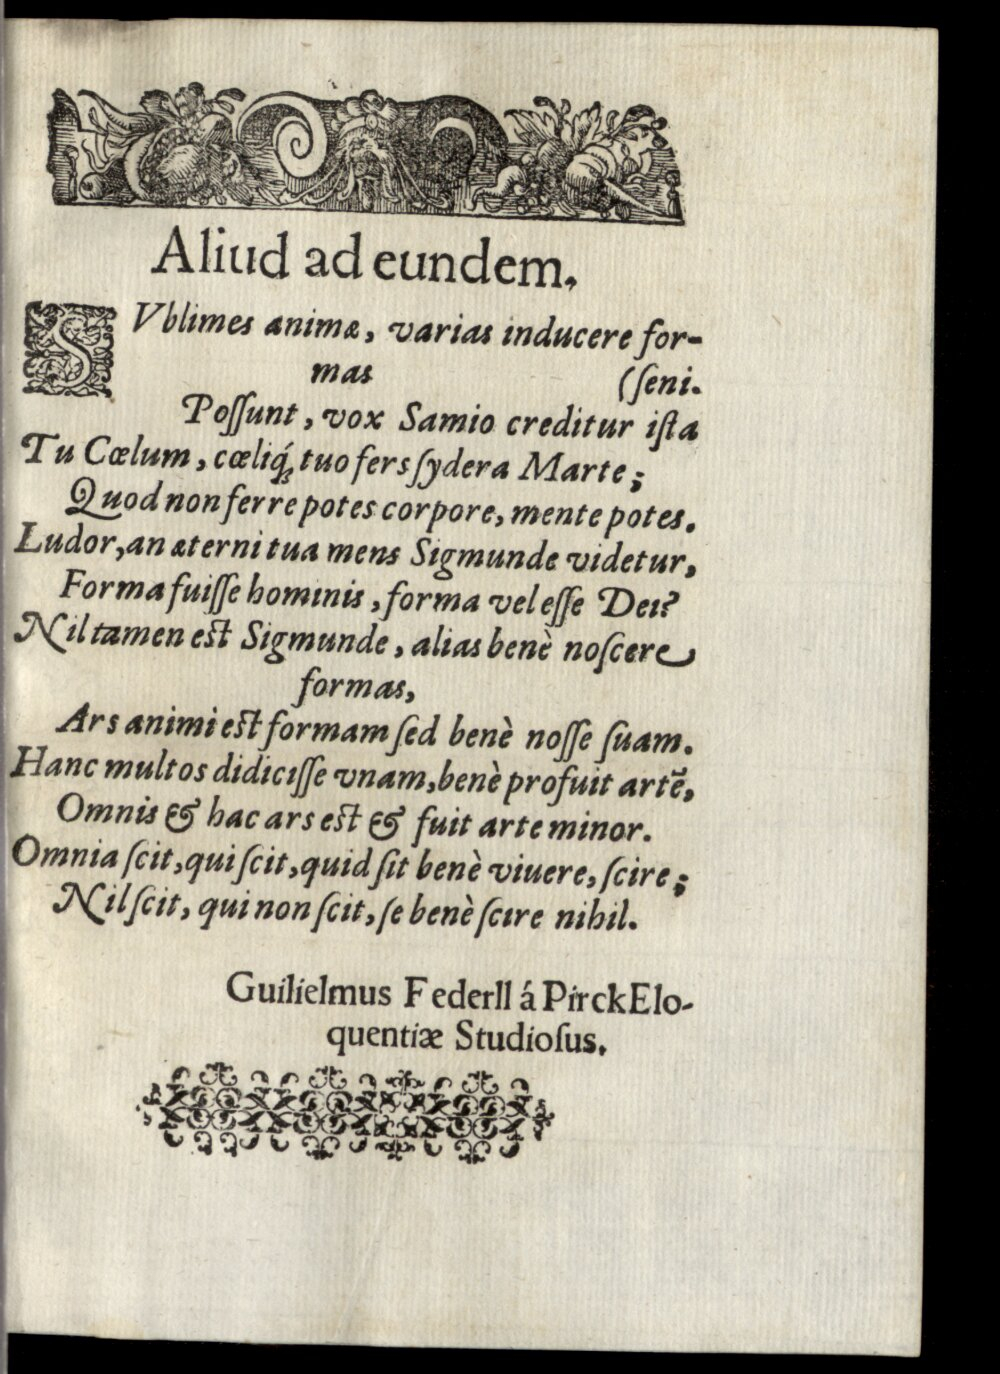 Aliud ad eundem.
SVblimes animæ, varias inducere for-
mas (ſeni.
Poſſunt, vox Samio creditur iſta
Tu Cœlum, cœliq́; tuo fers ſydera Marte;
Quod non ferre potes corpore, mente potes.
Ludor, an æterni tua mens Sigmunde videtur,
Forma fuiſſe hominis, forma vel eſſe Dei?
Nil tamen eſt Sigmunde, alias benè noſcere
formas,
Ars animi eſt formam ſed benè noſſe ſuam.
Hanc multos didiciſſe vnam, benè profuit artē,
Omnis & hac ars eſt & fuit arte minor.
Omnia ſcit, qui ſcit, quid ſit benè viuere, ſcire;
Nil ſcit, qui non ſcit, ſe benè ſcire nihil.
Guilielmus Federll á Pirck Elo-
quentiæ Studioſus.